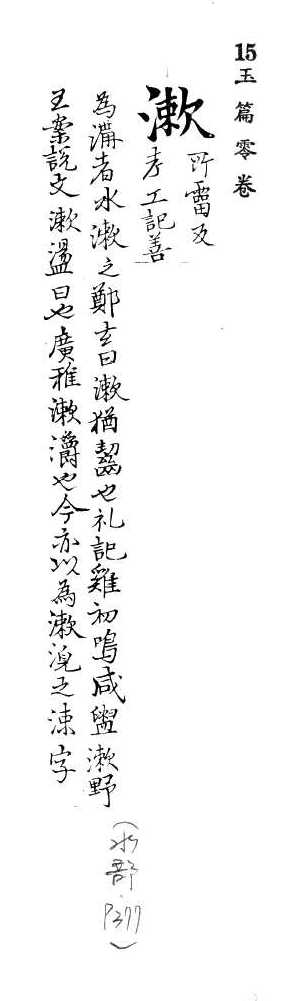 15玉篇零卷
漱 所霤反
考工記善
為溝者水漱之鄭玄曰漱猶齧也礼記雞初鳴咸盥漱野
王案說文漱盪口也廣雅漱灂也今亦以為漱浣之涑字
(水部 P377)